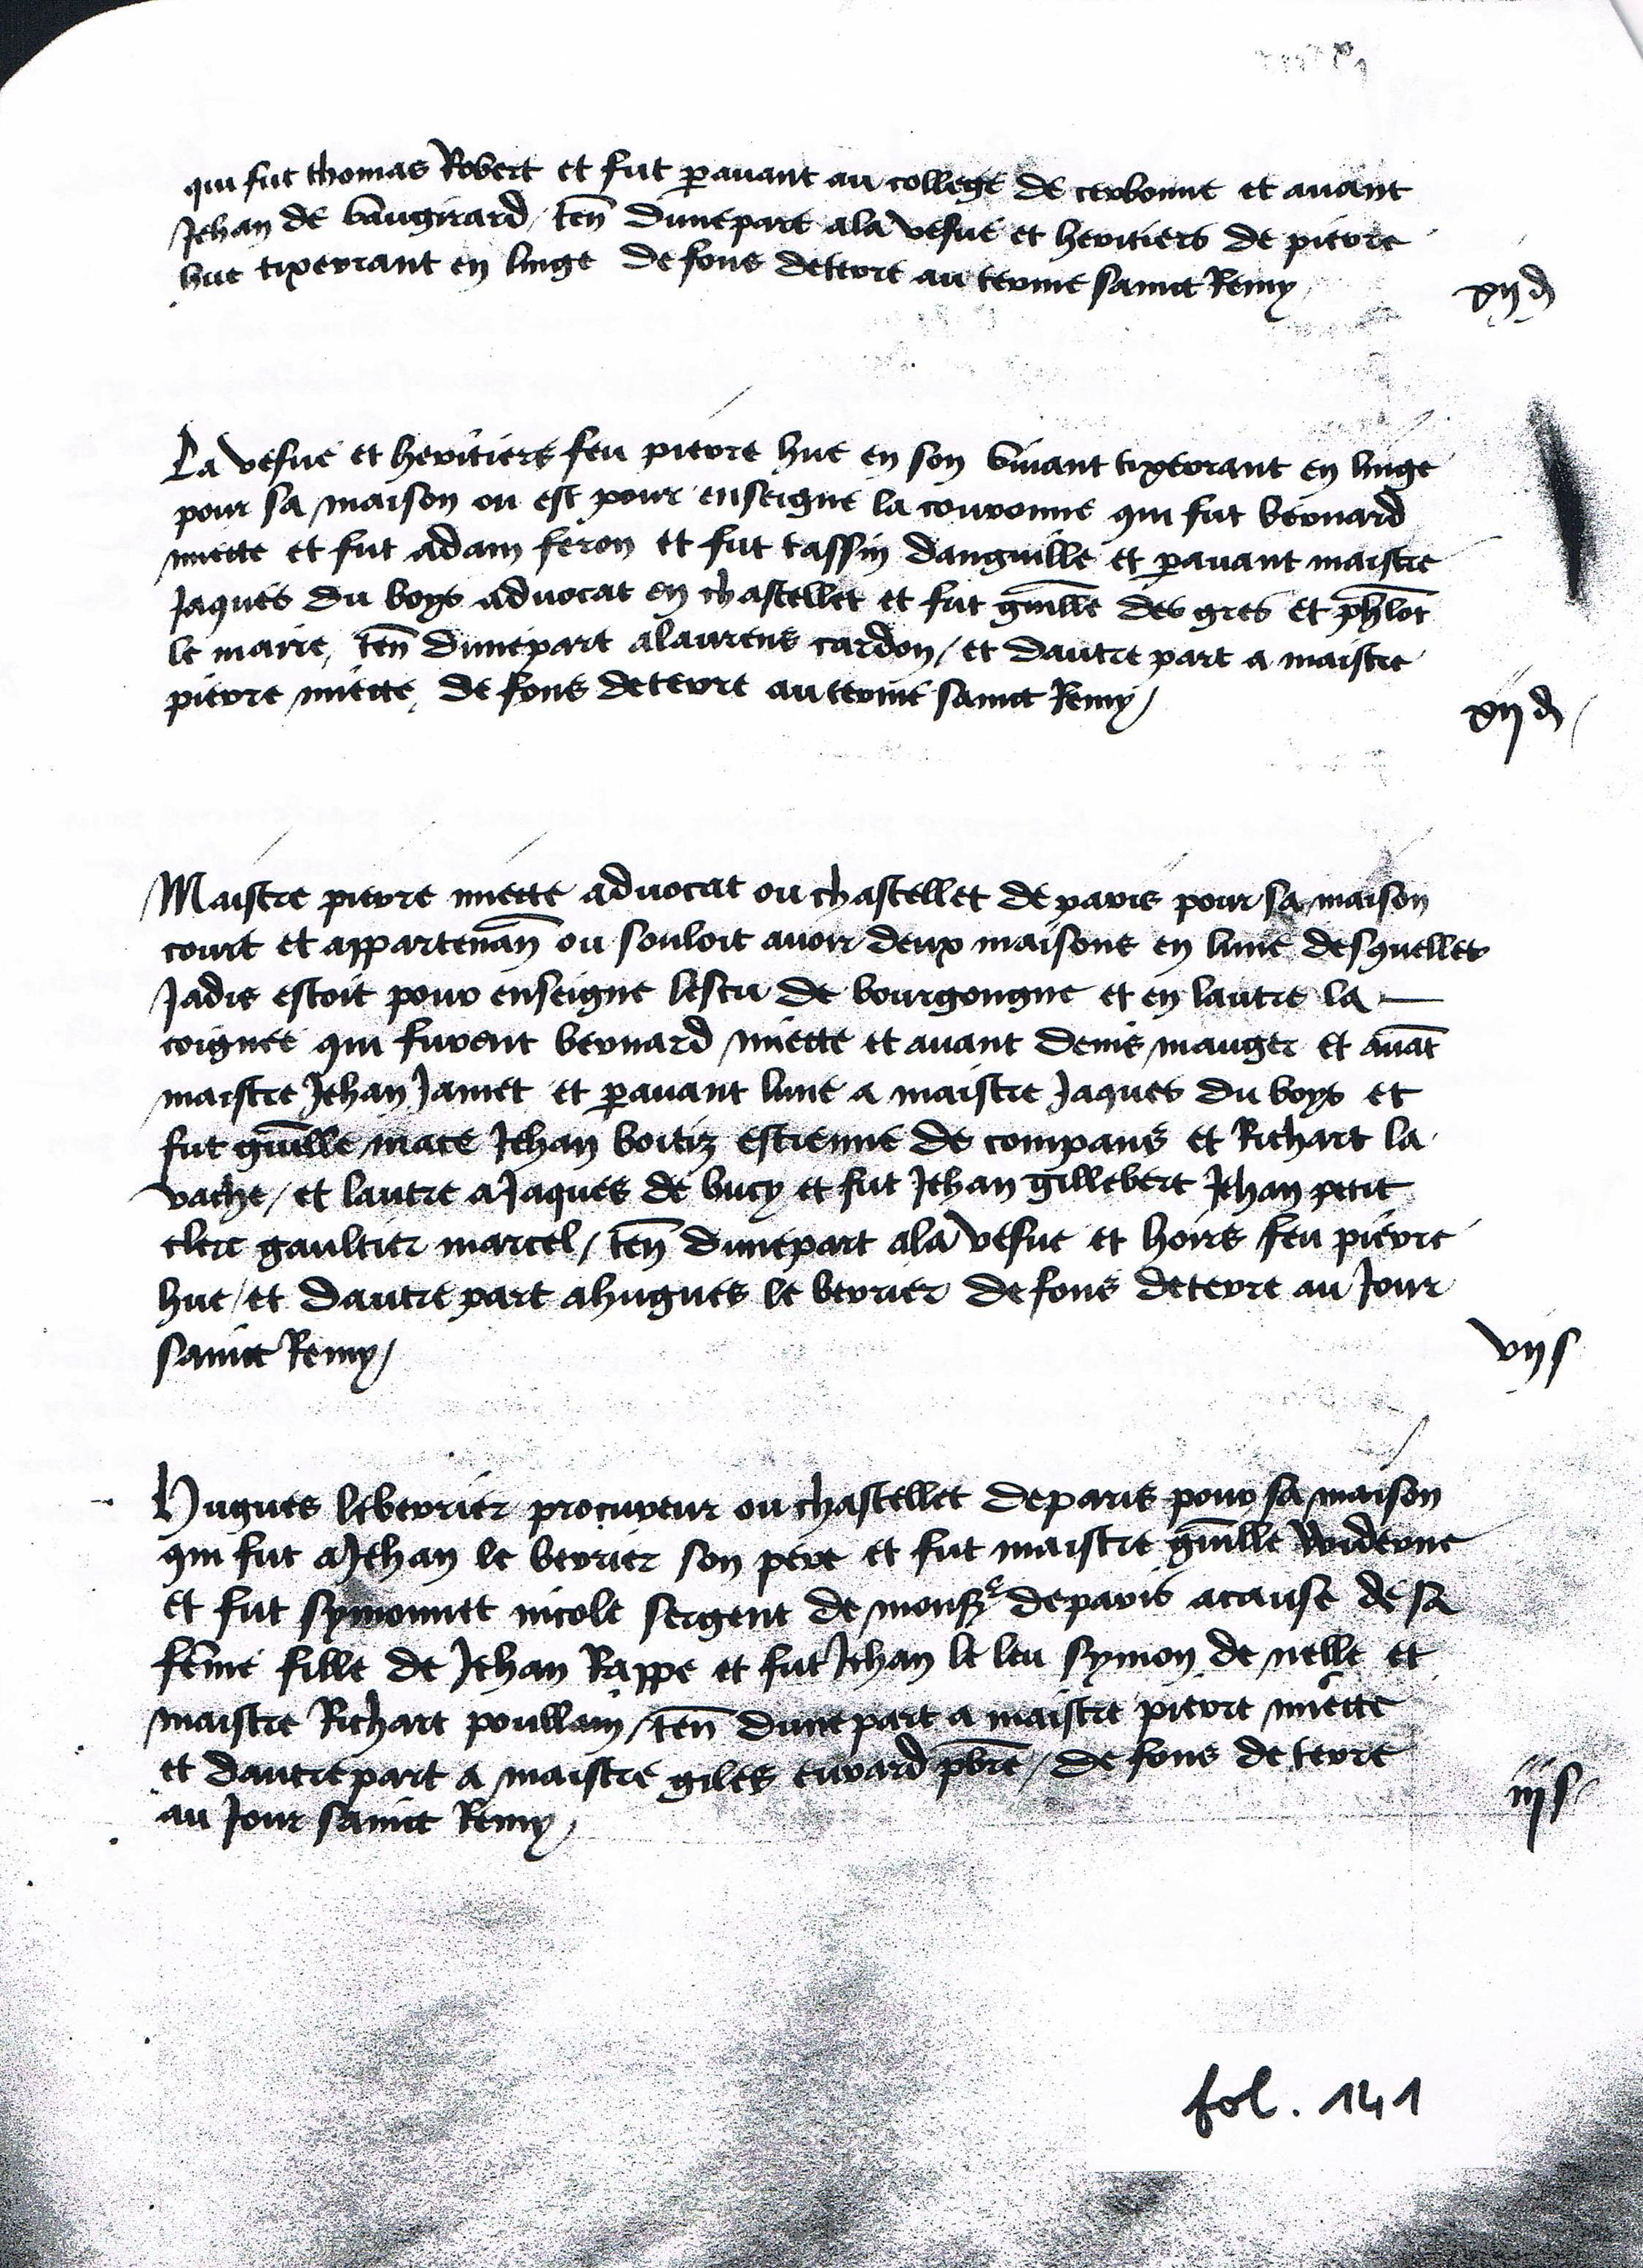 qui fut thomas Robert et fut pavant au college de cerbonne et avant
Jehan de vaugirard / ten dune part a la vesfue et heritiers de pierre
hue tixerrant en linge de fons de terre au terme saint Remy
xij d
La vesfue et heritiers feu pierre hue en son vivant tixerrant en linge
pour sa maison ou est pour enseigne la couronne qui fut bernard
miette et fut adam feron et fut tassin danguille et pavant maistre
Jaques du boys advocat en chastellet et fut guille des gres et phlot
le maire, ten dune part a laurens cardon / et dautre part a maistre
pierre miette, de fons de terre au terme saint Remy /
xij d
Maistre pierre miette advocat ou chastellet de paris pour sa maison
court et appartenan ou souloit avoir deux maisons en lune desquelles
Jadis estoit pour enseigne lescu de bourgongne et en lautre la —
coignee qui furent bernard miette et avant denis mauger et avat
maistre Jehan Jamet et pavant lune a maistre Jaques du boys et
fut guille mace Jehan boitiz estienne de compans et Richart la
vache / et lautre a Jaques de bucy et fut Jehan gillebert Jehan petit
clerc gaultier marcel / ten dune part a la vesfue et hoirs feu pierre
hue / et dautre part a hugues le berrier de fons de terre au Jour
saint Remy /
vij s
Hugues le berrier procureur ou chastellet de paris pour sa maison
qui fut a Jehan le berrier son pere et fut maistre guille widerue
et fut symonnet nicole sergent de monsr de paris a cause de sa
feme fille de Jehan Rappe et fut Jehan le leu symon de nelle et
maistre Richart poullain / ten dune part a maistre pierre miette
et dautre part a maistre giles eurard pbre / de fons de terre
au Jour saint Remy /
iij s
fol. 141